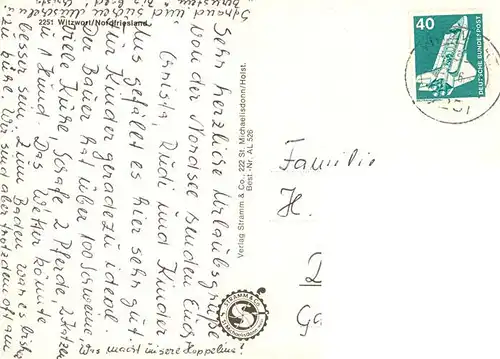 2251 Witzwort/Nordfriesland
Sehr herzliche Urlaubsgrüße
von der Nordsee senden Euch
Christa, Rudi und Kinder
Uns gefällt es hier sehr gut.
Für Kinder geradezu ideal.
Der Bauer hat über 100 Schweine,
viele Kühe, Schafe, 2 Pferde, 2 Katzen
u. 1 Hund. Das Wetter könnte
besser sein. Zum Baden war es bisher
zu kühl. Wir sind aber trotzdem oft am
Was macht unsere Koppelmie?
Verlag Stramm & Co., 222 St. Michaelisdonn/Holst.
Best.-Nr. AL 526
STRAMM & CO
St. Michaelisdonn
40
DEUTSCHE BUNDESPOST
Familie
H.